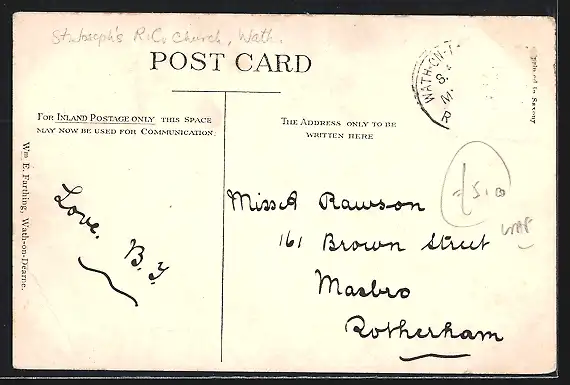 St. Joseph's R.C. Church, Wath.
POST CARD
WATH-ON-
8.
FOR INLAND POSTAGE ONLY THIS SPACE
MAY NOW BE USED FOR COMMUNICATION.
THE ADDRESS ONLY TO BE
WRITTEN HERE
in Saxony
Wm E. Farthing, Wath-on-Dearne.
Love.
B. Y.
Miss A Rawson
161 Brown Street
Masbro
Rotherham